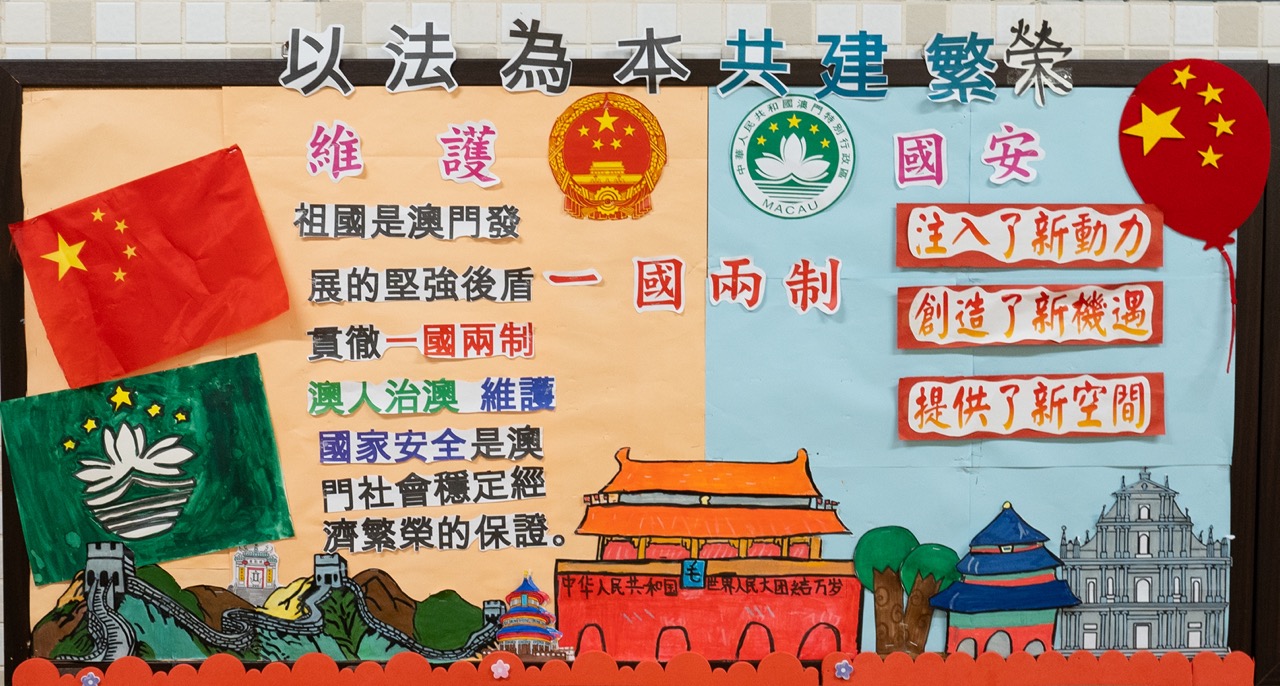 以法為本共建繁榮
維護
國安
中華人民共和國澳門特別行政區
MACAU
祖國是澳門發
展的堅強後盾
貫徹一國兩制
澳人治澳 維護
國家安全是澳
門社會穩定經
濟繁榮的保證。
一國兩制
注入了新動力
創造了新機遇
提供了新空間
中华人民共和国 毛 世界人民大团结万岁